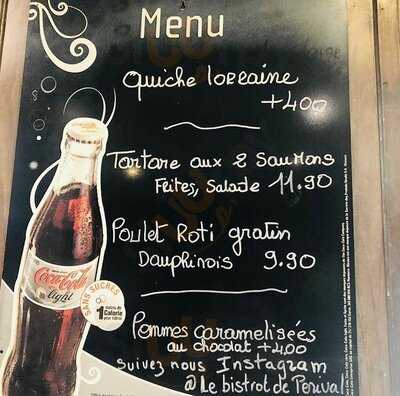 Menu
Quiche lorraine
+400
Tartare aux 2 Saumons
Frites, Salade 11.90
Poulet Roti gratin
Dauphinois 9.90
Pommes caramelisées
au chocolat +4,00
Suivez nous Instagram
@ Le bistrot de Periva
Coca-Cola
light
SANS SUCRES
1
Calorie